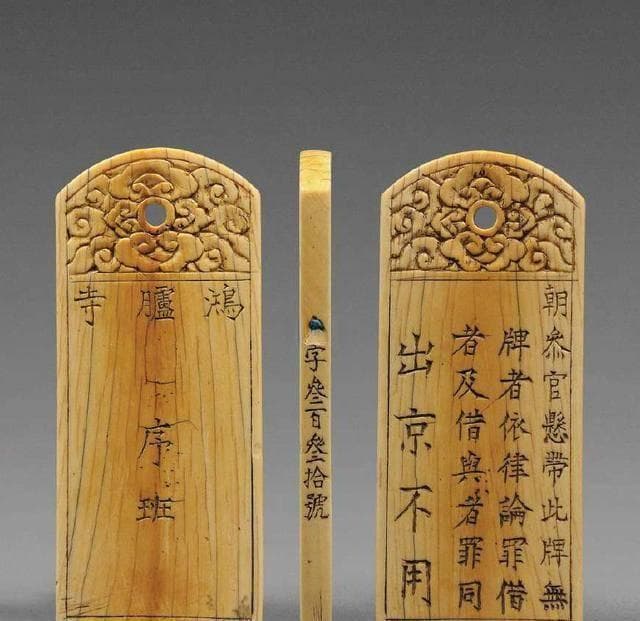 鴻臚寺
序班
字叁百叁拾號
朝叅官懸帶此牌無
牌者依律論罪借
者及借與者罪同
出京不用